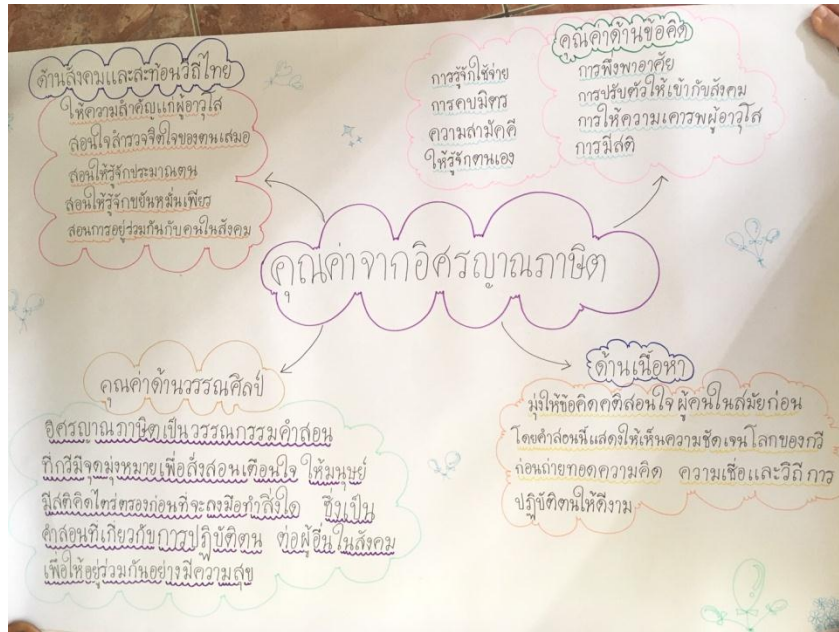 คุณค่าจากอิศรญาณภาษิต
ด้านสังคมและสะท้อนวิถีไทย
ให้ความสำคัญแก่ผู้อาวุโส
สอนใจสำรวจจิตใจของตนเสมอ
สอนให้รู้จักประมาณตน
สอนให้รู้จักขยันหมั่นเพียร
สอนการอยู่ร่วมกันกับคนในสังคม
คุณค่าด้านข้อคิด
การรู้จักใช้จ่าย
การคบมิตร
ความสามัคคี
ให้รู้จักตนเอง
การพึ่งพาอาศัย
การปรับตัวให้เข้ากับสังคม
การให้ความเคารพผู้อาวุโส
การมีสติ
คุณค่าด้านวรรณศิลป์
อิศรญาณภาษิตเป็นวรรณกรรมคำสอน
ที่กวีมีจุดมุ่งหมายเพื่อสั่งสอนเตือนใจ ให้มนุษย์
มีสติคิดไตร่ตรองก่อนที่จะลงมือทำสิ่งใด ซึ่งเป็น
คำสอนที่เกี่ยวกับการปฏิบัติตน ต่อผู้อื่นในสังคม
เพื่อให้อยู่ร่วมกันอย่างมีความสุข
ด้านเนื้อหา
มุ่งให้ข้อคิดคติสอนใจ ผู้คนในสมัยก่อน
โดยคำสอนนี้แสดงให้เห็นความชัดเจนโลกของกวี
ก่อนถ่ายทอดความคิด ความเชื่อและวิถี การ
ปฏิบัติตนให้ดีงาม